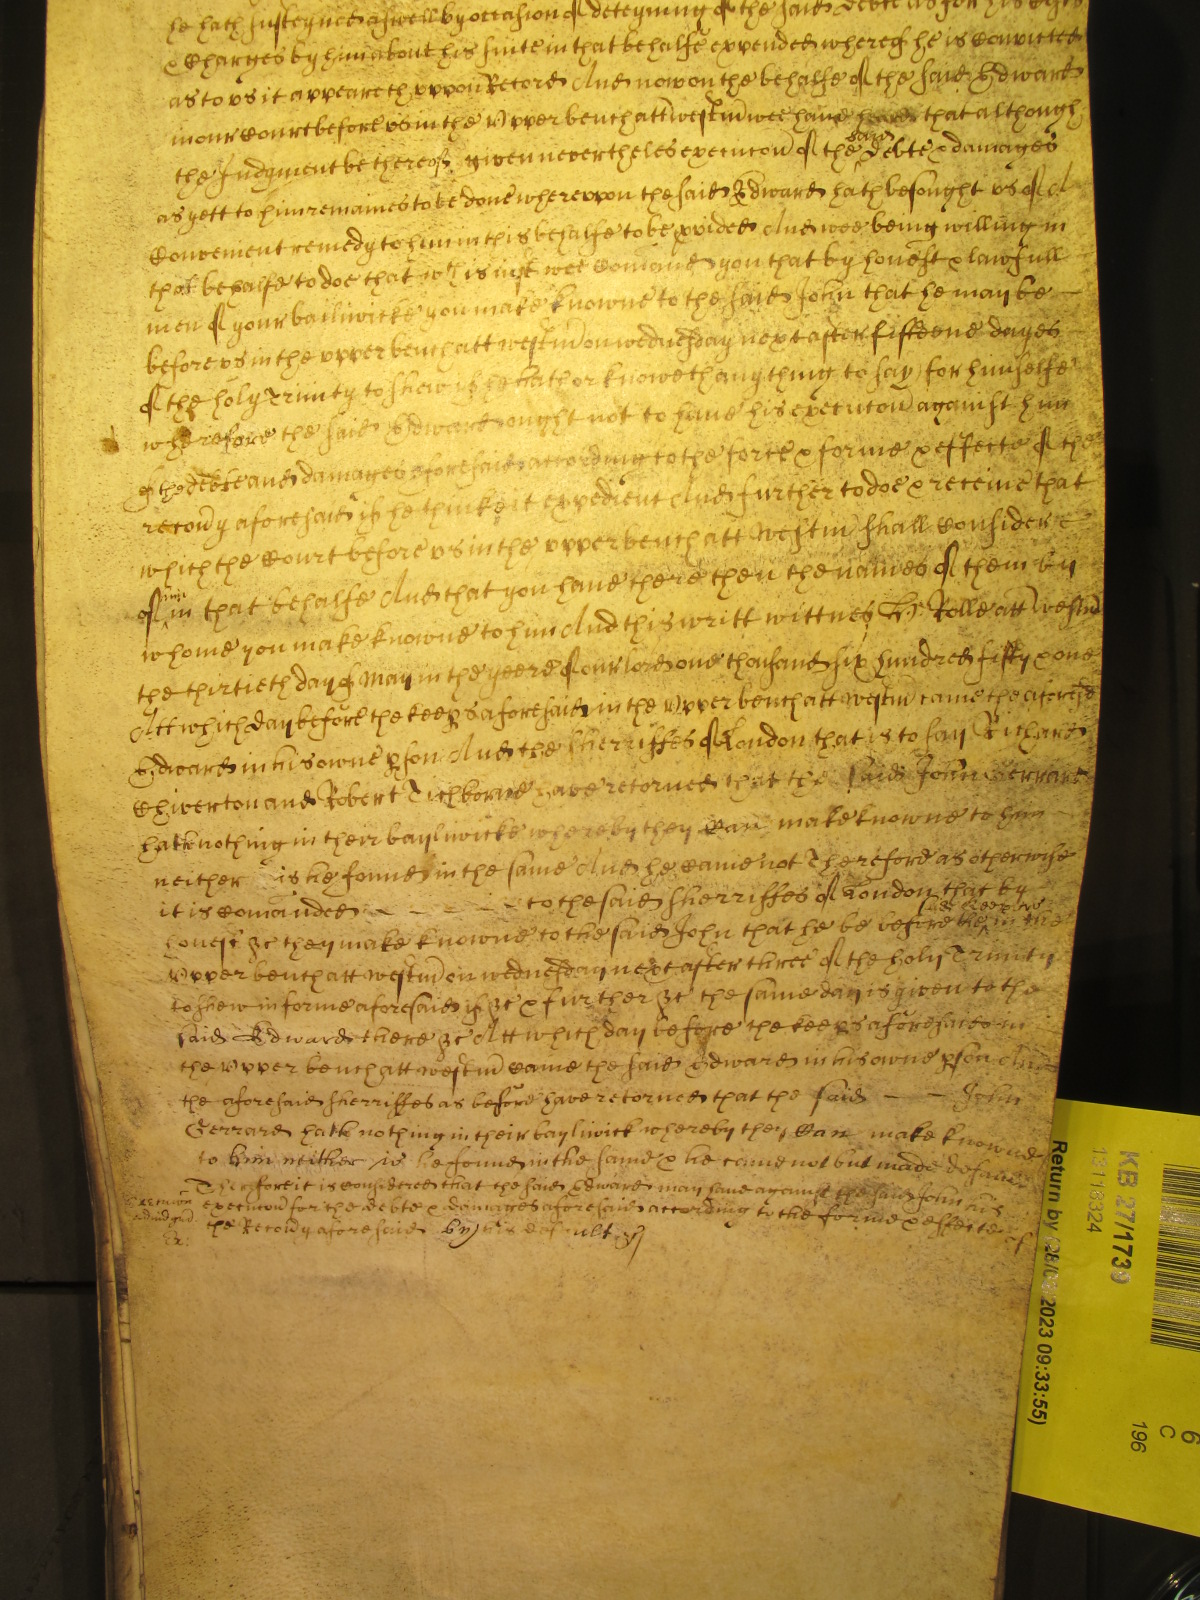 he hath susteyned aswell by occasion of deteyning of the said debte as for his costs
& Charges by him about his suite in that behalfe expended whereof he is Convicted
as to us it appeareth uppon Record And now on the behalfe of the said Edward
in our Court before us in the Upper bench att Westm wee have that although
the Judgment be thereof given neverthelesse execucon of the said Debte & damages
as yett to him remaines to be done whereupon the said Edward hath besought us of A
Convenient remedy to him in this behalfe to be pvided And wee being willing in
that behalfe to doe that wch is just wee Comand you that by honest & lawfull
men of your bailiwicke you make knowne to the said John that he may be
before us in the upper bench att Westm on wednesday next after fifteene dayes
of the holy Trinity to shew if he hath or knoweth any thing to say for himselfe
wherefore the said Edward ought not to have his execucon against him
of the debte and damages aforesaid according to the force & forme & effecte of the
recovy aforesaid if he thinke it expedient And further to doe & receive that
which the Court before us in the upper bench att Westm shall Consider
of him in that behalfe And that you have there then the names of them by
whome you make knowne to him And this writt wittnes H: Rolle att Westm
the thirtieth day of May in the yeere of our lord one thousand six hundred fifty & one
Att which day before the keeps aforesaid in the Upper bench att Westm came the aforesd
Edward in his owne pson And the Sherriffes of London that is to say Richard
Chiverton and Robert Tichborne have retorned that the said John Gerrard
hath nothing in their bayliwicke whereby they Can make knowne to him
neither is he found in the same And he Came not Therefore as otherwise
it is Comanded to the said Sherriffes of London that by
honest &c they make knowne to the said John that he be before the in the
Upper bench att Westm on wednesday next after three of the holy Trinity
to shew in forme aforesaid if &c & further &c the same day is given to the
said Edward there &c Att which day before the keeps aforesaid in
the Upper bench att Westm Came the said Edward in his owne pson And
the aforesaid Sherriffes as before have retorned that the said John
Gerrard hath nothing in their bayliwick whereby they Can make knowne
to him neither is he found in the same & he came not but made default
Therefore it is Considered that the said Edward may have against the said John his
execucon for the debte & damages aforesaid according to the forme & effecte of
the Recovy aforesaid by his default &c
Return by (28/0 2023 09:33:55)
13118324
KB 27/1739
6
C
196